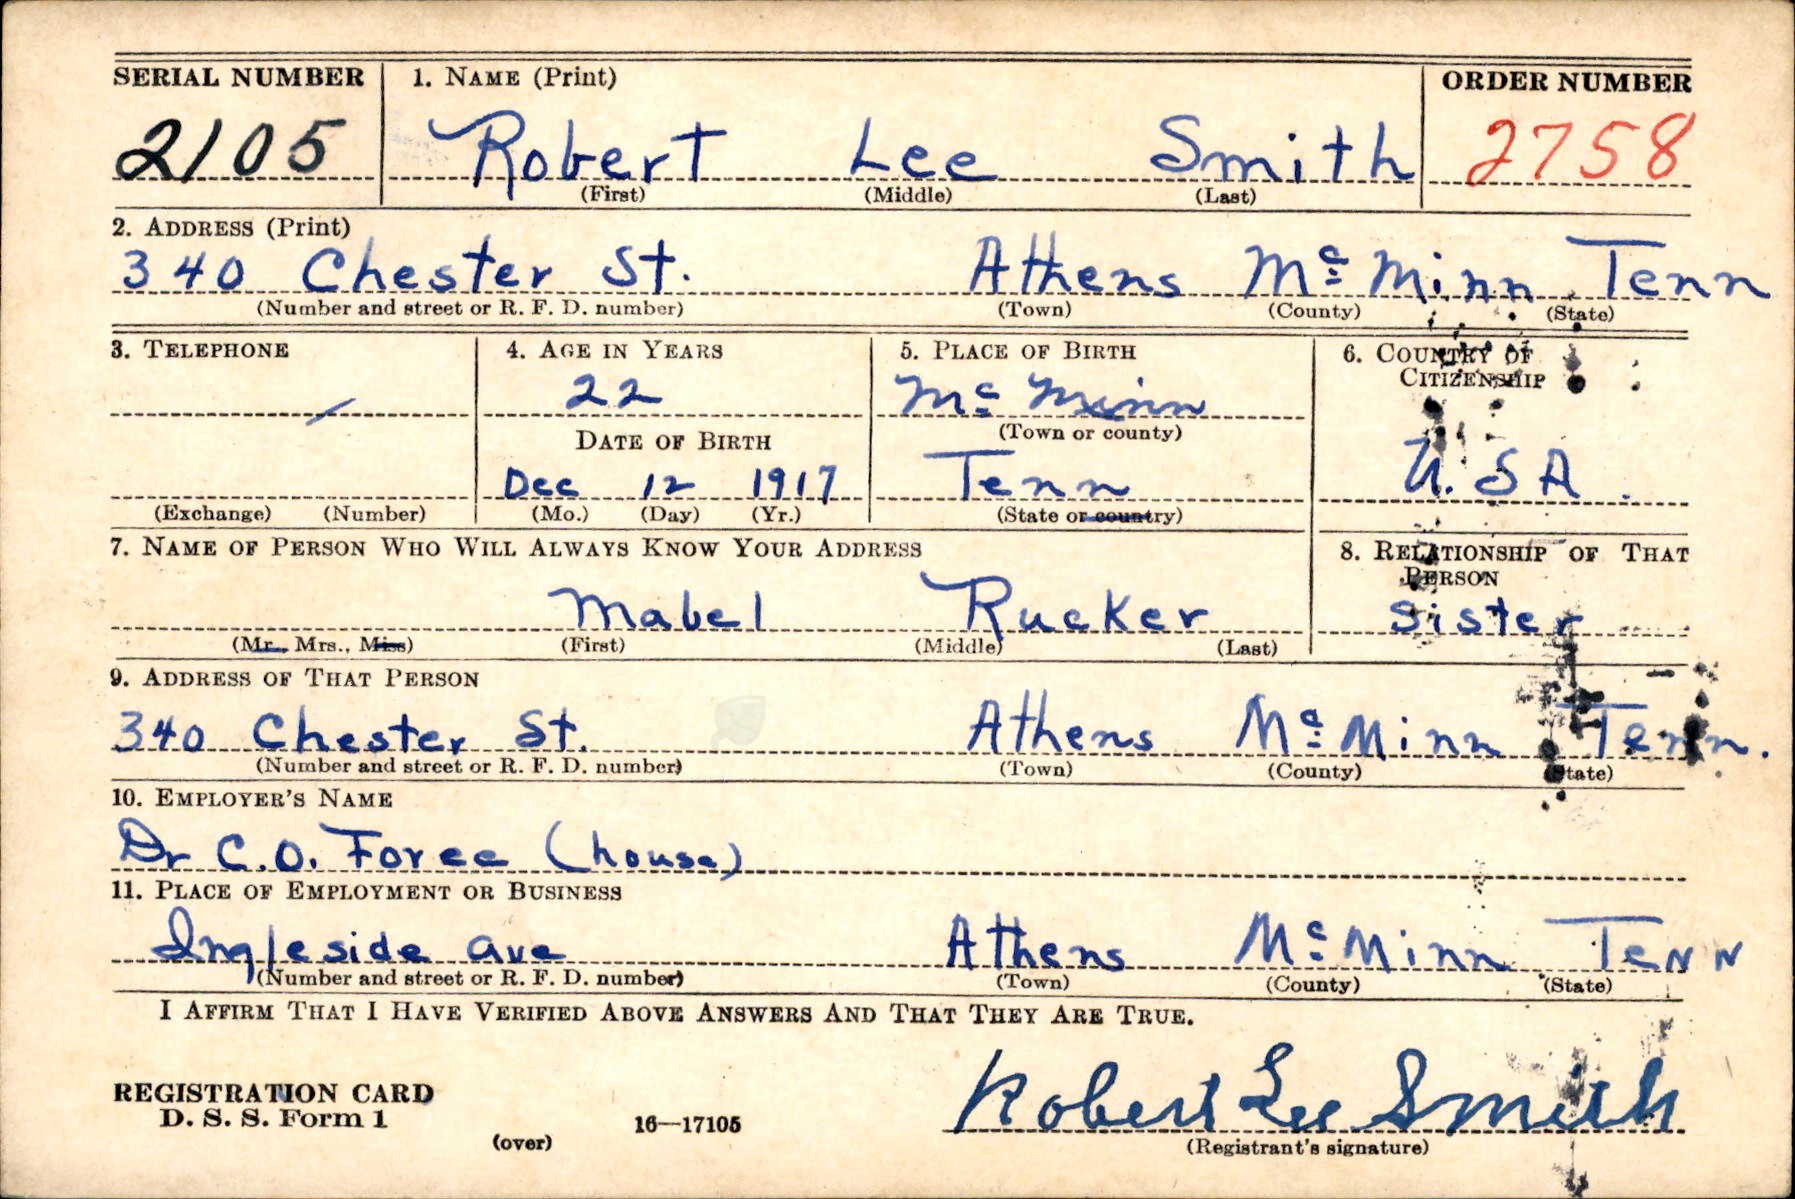 SERIAL NUMBER 1. NAME (Print) ORDER NUMBER
2105 Robert Lee Smith 2758
(First) (Middle) (Last)
2. ADDRESS (Print)
340 Chester St. Athens Mc Minn Tenn
(Number and street or R. F. D. number) (Town) (County) (State)
3. TELEPHONE 4. AGE IN YEARS 5. PLACE OF BIRTH 6. COUNTRY OF CITIZENSHIP
22 Mc Minn
(Town or county)
DATE OF BIRTH
Dec 12 1917 Tenn U.SA.
(Exchange) (Number) (Mo.) (Day) (Yr.) (State or country)
7. NAME OF PERSON WHO WILL ALWAYS KNOW YOUR ADDRESS 8. RELATIONSHIP OF THAT PERSON
Mabel Rucker Sister
(Mr., Mrs., Miss) (First) (Middle) (Last)
9. ADDRESS OF THAT PERSON
340 Chester St. Athens Mc Minn Tenn.
(Number and street or R. F. D. number) (Town) (County) (State)
10. EMPLOYER'S NAME
Dr C.O. Foree (house)
11. PLACE OF EMPLOYMENT OR BUSINESS
Ingleside ave Athens Mc Minn Tenn
(Number and street or R. F. D. number) (Town) (County) (State)
I AFFIRM THAT I HAVE VERIFIED ABOVE ANSWERS AND THAT THEY ARE TRUE.
Robert Lee Smith
(Registrant's signature)
REGISTRATION CARD
D. S. S. Form 1
(over) 16—17105